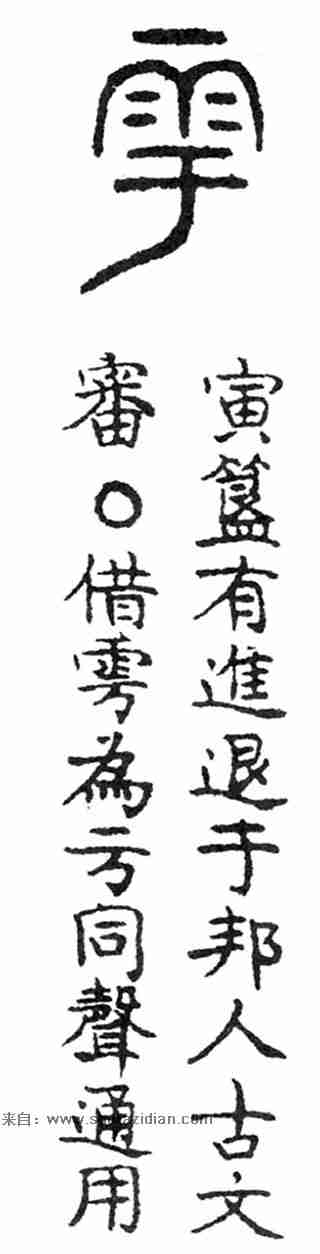 雩
寅簋有進退于邦人古文
審○借雩為亏同聲通用
来自：www.shufazidian.com